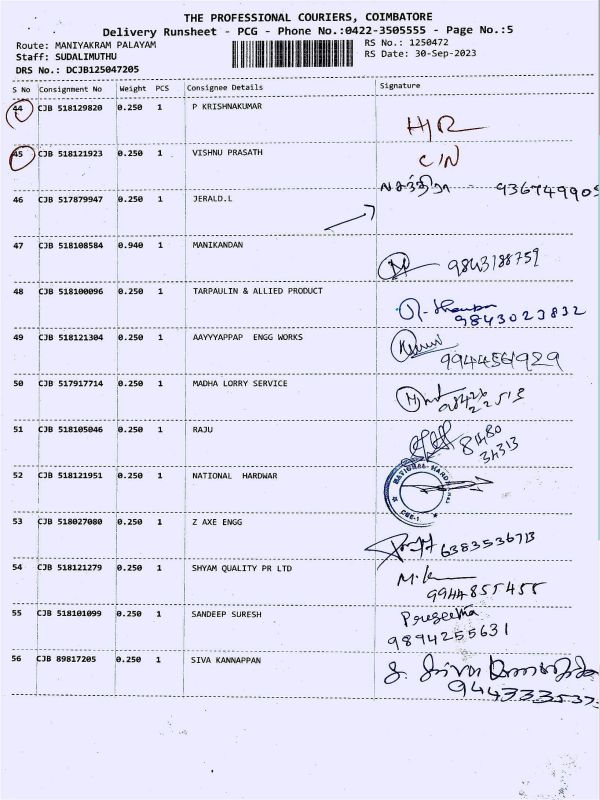 THE PROFESSIONAL COURIERS, COIMBATORE
Delivery Runsheet - PCG - Phone No.:0422-3505555 - Page No.:5
Route: MANIYAKRAM PALAYAM RS No.: 1250472
Staff: SUDALIMUTHU RS Date: 30-Sep-2023
DRS No.: DCJB125047205
S No Consignment No Weight PCS Consignee Details Signature
44 CJB 518129820 0.250 1 P KRISHNAKUMAR H/R
45 CJB 518121923 0.250 1 VISHNU PRASATH C/N
46 CJB 517879947 0.250 1 JERALD.L
47 CJB 518108584 0.940 1 MANIKANDAN 9843188759
48 CJB 518100096 0.250 1 TARPAULIN & ALLIED PRODUCT 9843023832
49 CJB 518121304 0.250 1 AAYYYAPPAP ENGG WORKS
50 CJB 517917714 0.250 1 MADHA LORRY SERVICE
51 CJB 518105046 0.250 1 RAJU
52 CJB 518121951 0.250 1 NATIONAL HARDWAR
53 CJB 518027080 0.250 1 Z AXE ENGG 6383536713
54 CJB 518121279 0.250 1 SHYAM QUALITY PR LTD M.K
9944855455
55 CJB 518101099 0.250 1 SANDEEP SURESH Preseetha
9894255631
56 CJB 89817205 0.250 1 SIVA KANNAPPAN